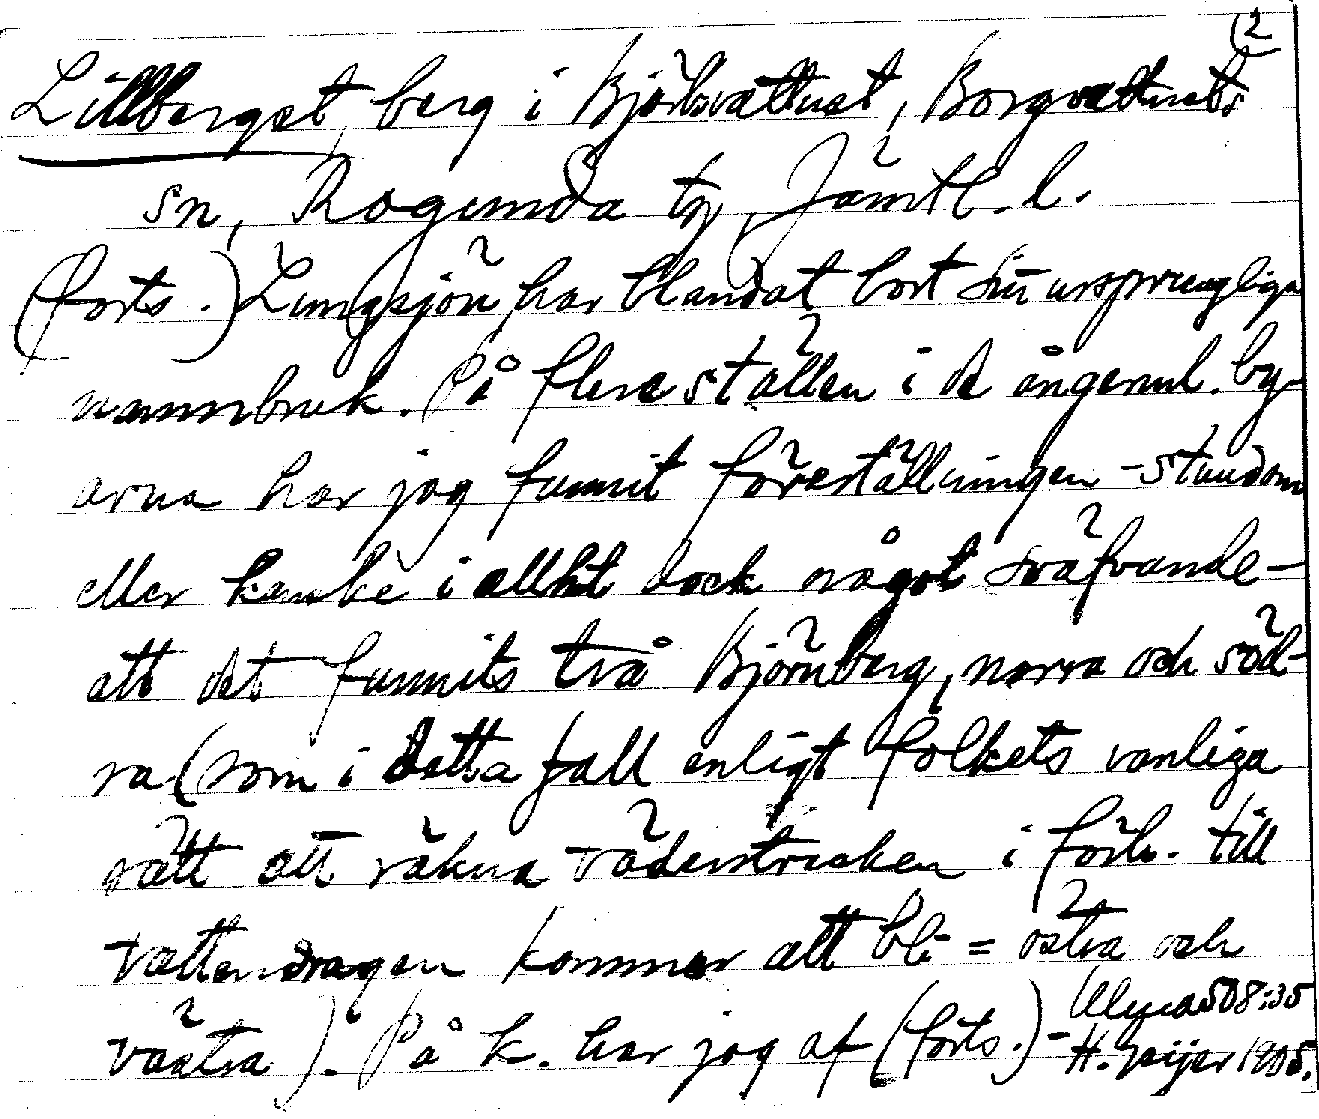 (2
Lillberget, berg i Björkvattnet, Borgvattnets
sn, Ragunda tg, Jämtl. l.
(forts.) Lungsjön har blandat bort sin ursprungliga
namnbruk. På flera ställen i de ångerml. by-
arna har jag funnit föreställningen - stundom
eller kanske i allht dock något sväfvande -
att det funnits två Björnberg, norra och söd-
ra (som i detta fall enligt folkets vanliga
sätt att räkna väderstrecken i förh. till
vattendragen kommer att bli = östra och
västra). På k. har jag af (forts.) -
Ulma 508:35
H. Geijer 1905.